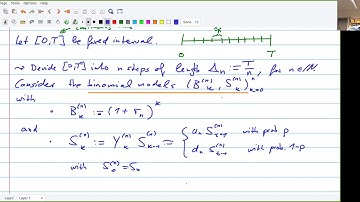 Let [0,T] be fixed interval.
0 T
→ Divide [0,T] into n steps of length Δ_n := T/n, for n∈ℕ
Consider the binomial models (B_k^(n), S_k^(n))_{k=0}^n
with
• B_k^(n) := (1 + r_n)^k
and • S_k^(n) := Y_k^(n) S_{k-1}^(n) := { u_n S_{k-1}^(n) with prob p
d_n S_{k-1}^(n) with prob. 1-p
with S_0^(n) = S_0